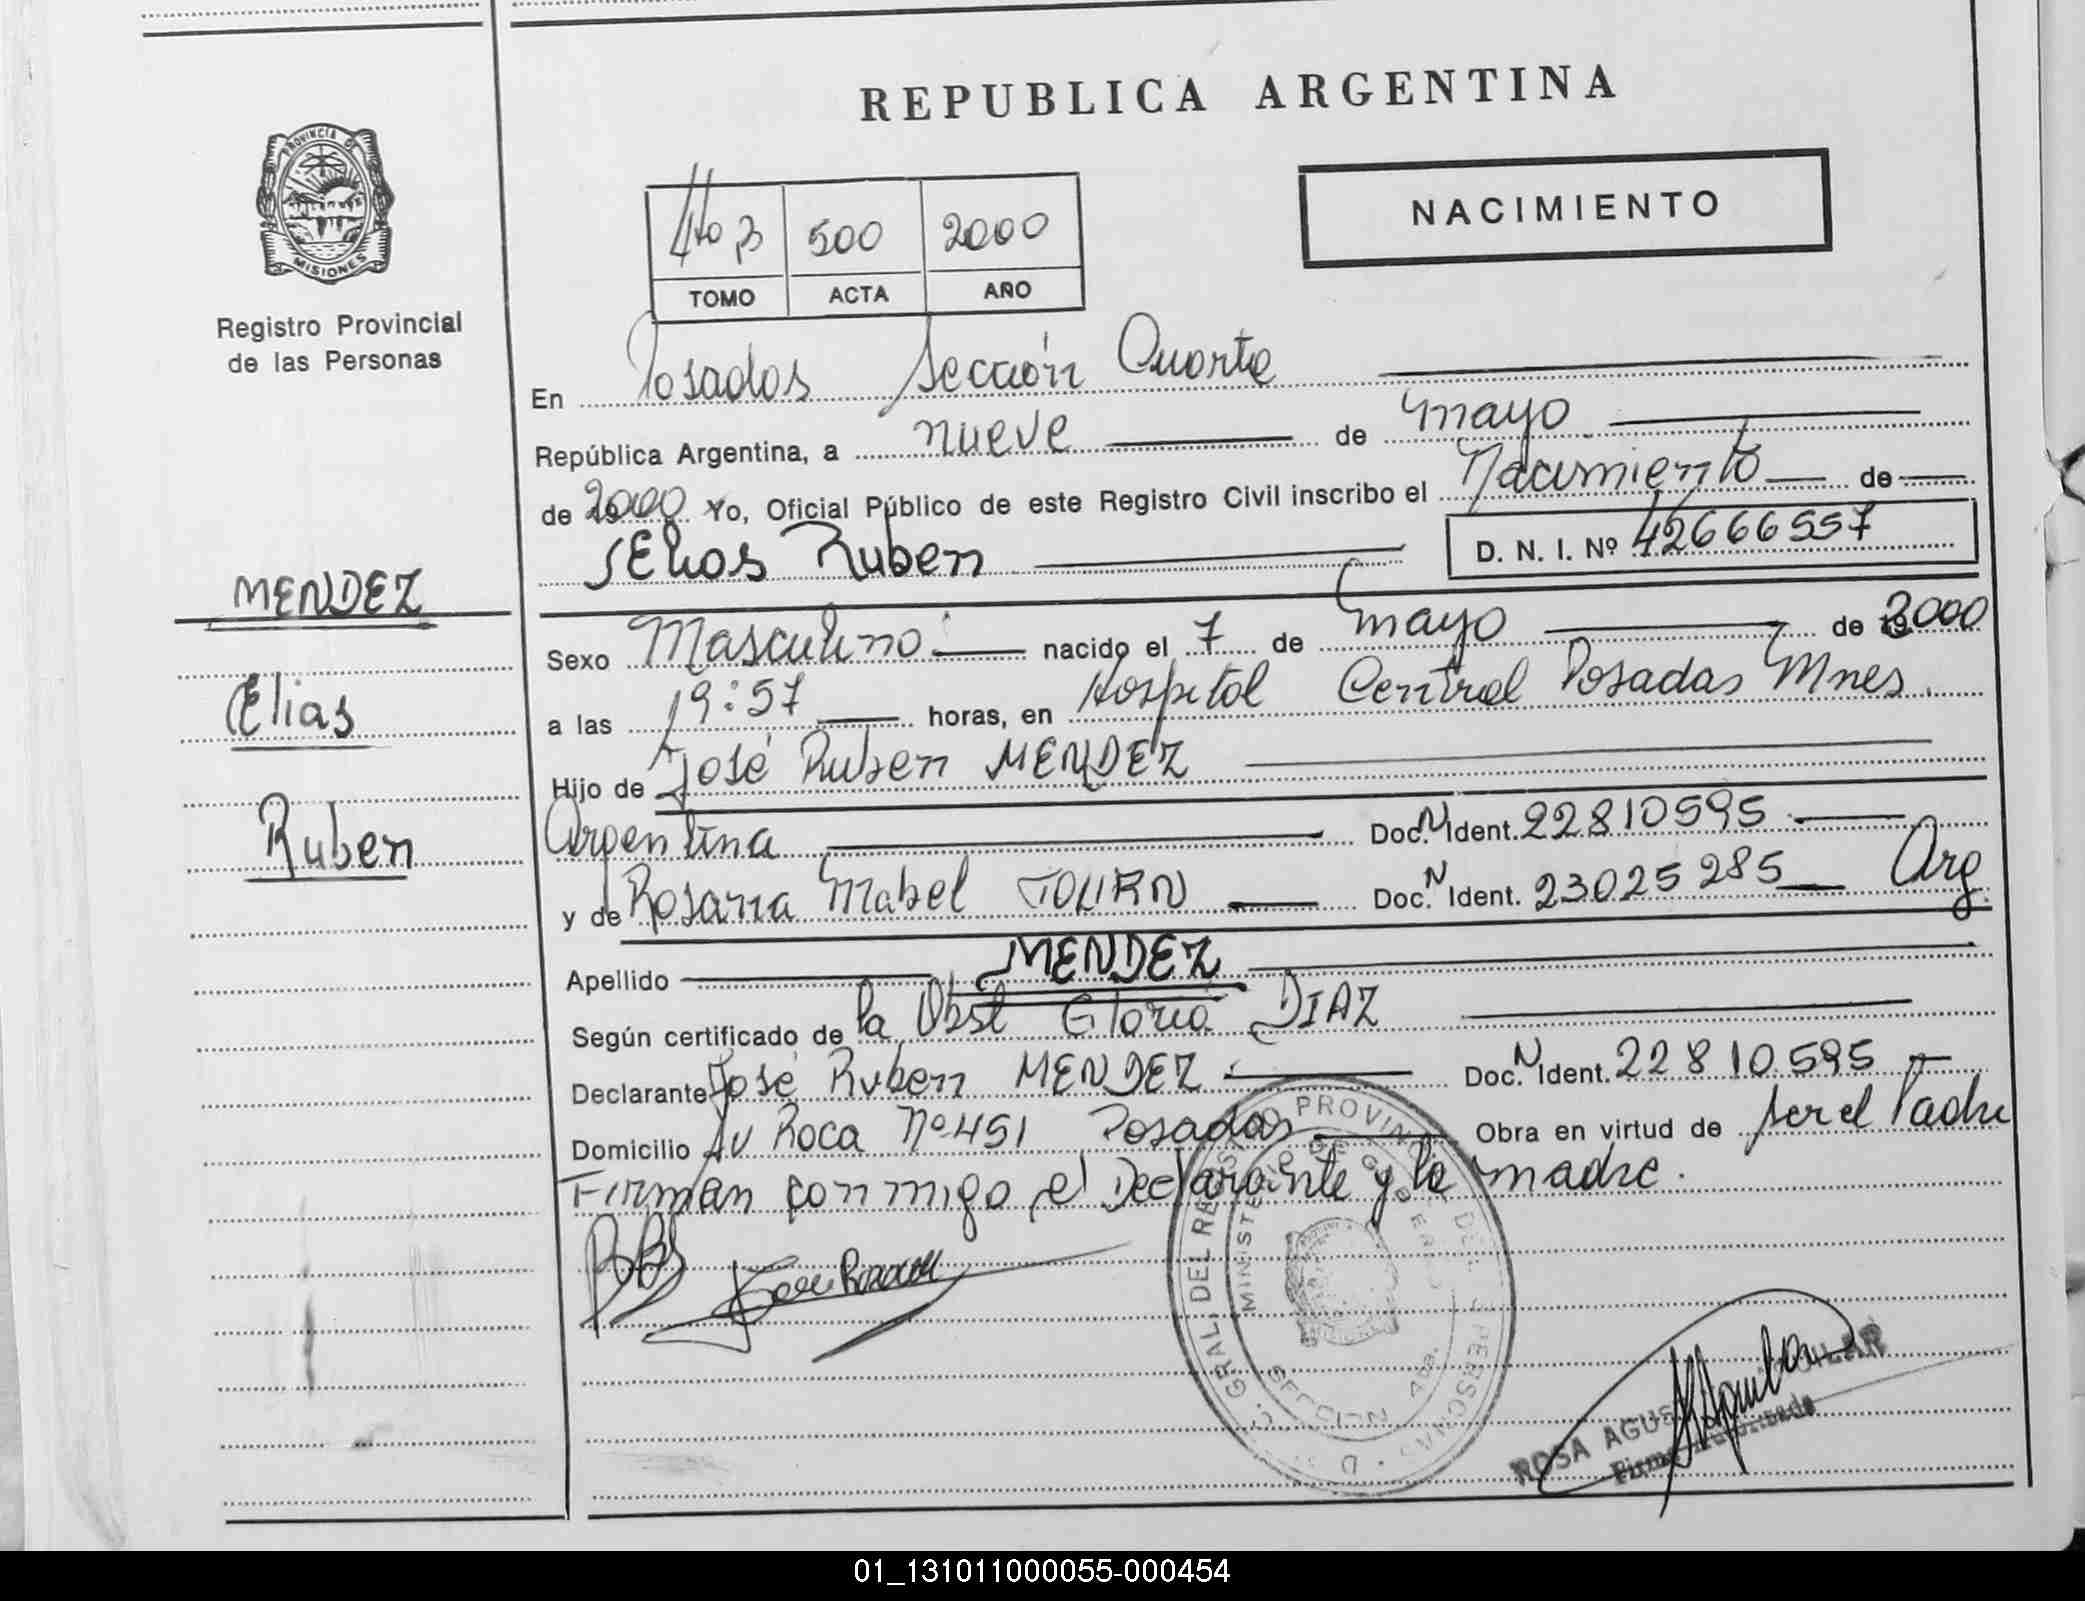 REPUBLICA ARGENTINA
PROVINCIA DE
MISIONES
Registro Provincial
de las Personas
NACIMIENTO
4to B 500 2000
TOMO ACTA AÑO
En Posadas Sección Cuarta
República Argentina, a nueve de mayo
de 2000 Yo, Oficial Público de este Registro Civil inscribo el Nacimiento de
Elias Ruben D. N. I. Nº 42666557
MENDEZ
Elias
Ruben
Sexo Masculino nacido el 7 de mayo de 2000
a las 19:57 horas, en Hospital Central Posadas Mnes.
Hijo de José Ruben MENDEZ
Argentina Doc. N Ident. 22810595
y de Rosana Mabel TOURN Doc. N Ident. 23025285 Arg.
Apellido MENDEZ
Según certificado de la Obst Gloria DIAZ
Declarante José Ruben MENDEZ Doc. N Ident. 22810595
Domicilio Av Roca Nº 451 Posadas Obra en virtud de ser el Padre
Firman conmigo el Declarante y la madre.
GRAL. DEL REGISTRO PROVINCIAL DE PERSONAS
MINISTERIO DE GOBIERNO
SECCION 4ta.
ROSA AGUILAR
Firma Autorizada
01_131011000055-000454